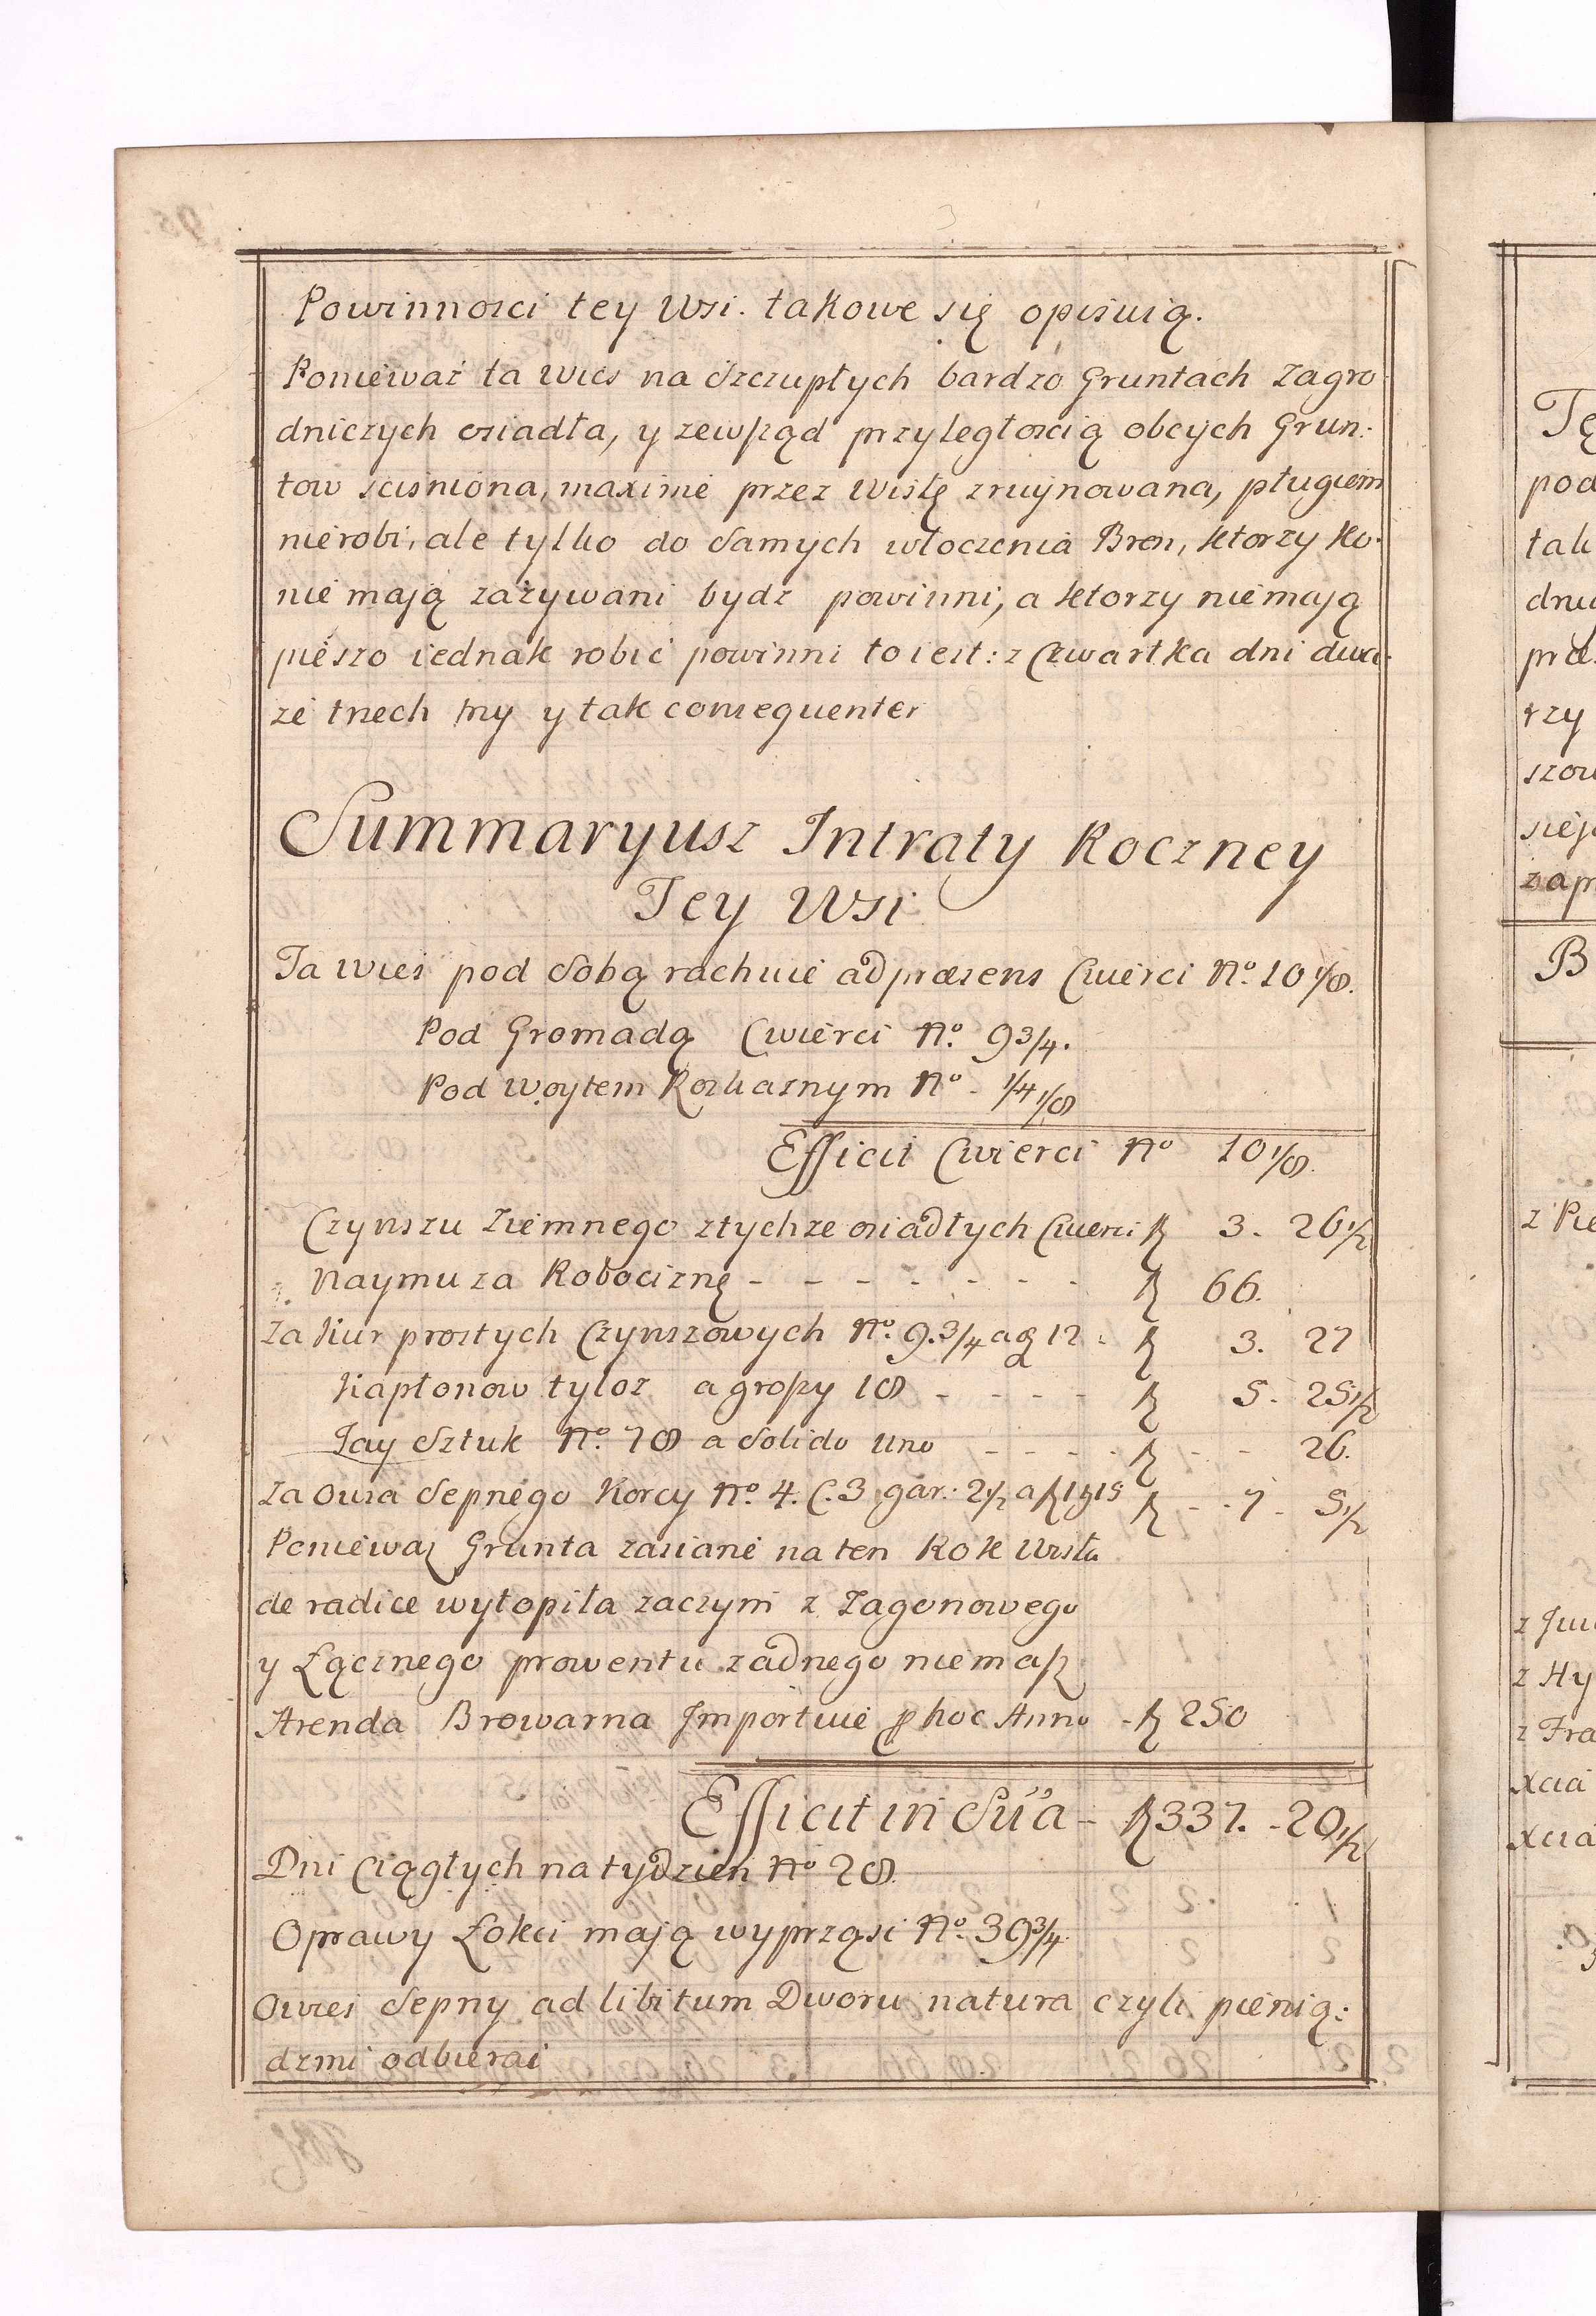 Powinnosci tey Wsi. takowe się opisuią.
Ponieważ ta wies na Szczupłych bardzo Gruntach Zagro
dniczych osiadła, y zewsząd przyległoscią obcych Grun:
tow scisniona, maxime przez Wisłę zruynowana, pługiem
nierobi, ale tylko do Samych włoczenia Bron, ktorzy ko:
nie mają zażywani bydz powinni, a ktorzy niemają
pieszo iednak robić powinni to iest: z Czwartka dni dwa:
ze trzech trzy y tak consequenter
Summaryusz Intraty Roczney
Tey Wsi
Ta wies pod Sobą rachuie ad præsens Cwierci No. 10 1/8.
Pod Gromadą Cwierci No. 9 3/4.
Pod woytem Rozkaznym No - 1/4 1/8
Efficit Cwierci No 10 1/8.
Czynszu Ziemnego z tychże osiadłych Cwierci 3. 26 1/2
Naymu za Robociznę - - - - - - - 66.
Za Kur prostych Czynszowych No. 9. 3/4 a 12 3. 27
Kapłonow tyloz a groszy 18 - - - - 5. 25 1/2
Jay Sztuk No. 78 a Solido uno - - - - 26.
Za owsa Sepnego Korcy No. 4. C. 3 gar: 2 1/2 a 7 - 5 1/2
Ponieważ Grunta zasiane na ten Rok Wisła
de radice wytopiła zaczym z Zagonowego
y Łącznego prowentu żadnego niemasz
Arenda Browarna Importuie p hoc Anno 250
Efficit in Sua - 337. - 20 1/2
Dni Ciągłych na tydzien No 28
Oprawy Łokci mają wyprząsć No. 39 3/4
Owies Sepny ad libitum Dworu natura czyli pienią:
dzmi odbierać